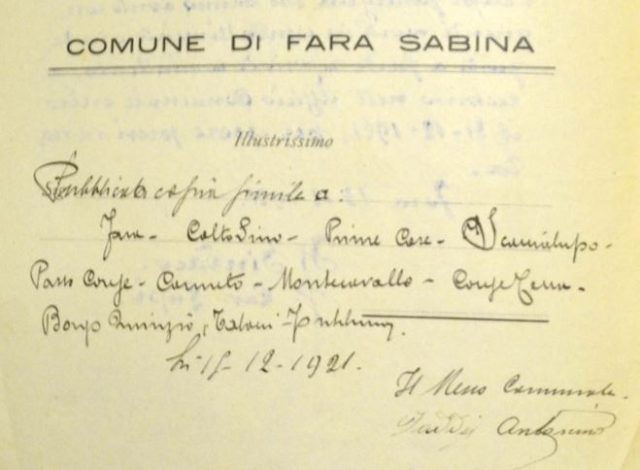 COMUNE DI FARA SABINA
Illustrissimo
Pubblicata copia simile a
Fara - Coltodino - Prime Case - Scannalupo -
Passo Corese - Canneto - Montecavallo - Corese Terra -
Borgo Quinzio,
lì 15-12-1921.
Il Messo Comunale
Antonino